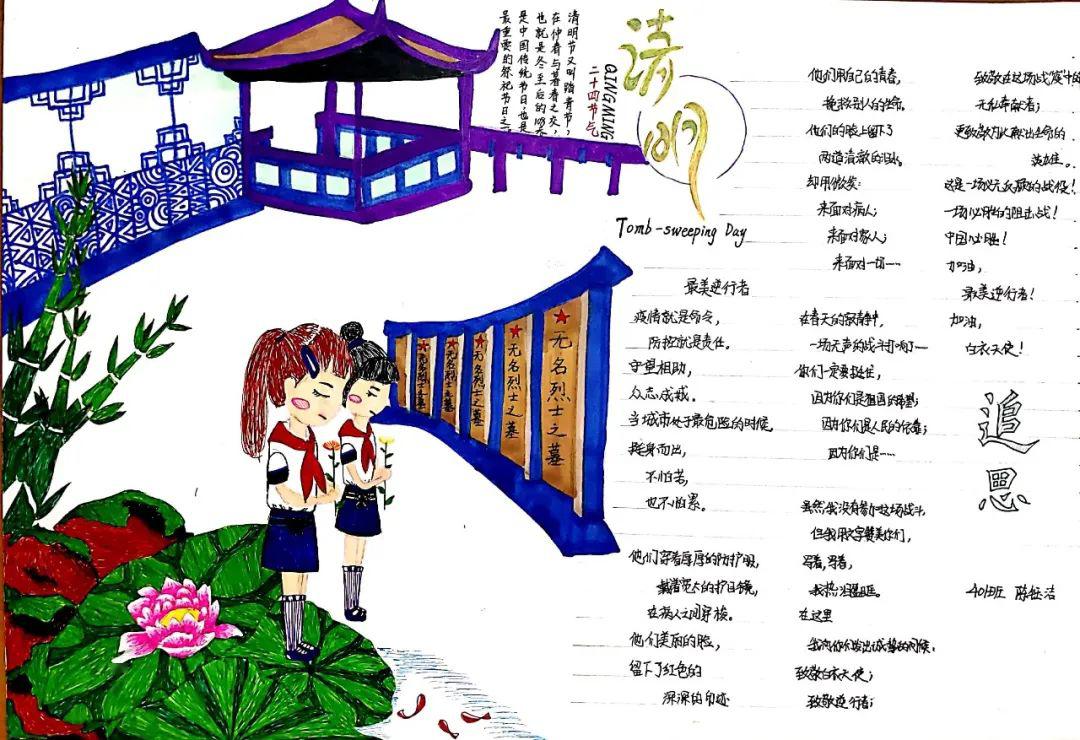 清明节又叫踏青节,
在仲春与暮春之交,
也就是冬至后的108天
是中国传统节日,也是
最重要的祭祀节日之一
清明
QINGMING
二十四节气
Tomb-sweeping Day
无名烈士之墓
无名烈士之墓
无名烈士之墓
无名烈士之墓
无名烈士之墓
最美逆行者
疫情就是命令,
防控就是责任。
守望相助,
众志成城。
当城市处于最危险的时候,
挺身而出,
不怕苦,
也不怕累。
他们穿着厚厚的防护服,
戴着宽大的护目镜,
在病人之间穿梭。
他们美丽的脸,
留下了红色的
深深的印迹
他们用自己的青春,
挽救别人的生命,
他们的脸上留下了
两道清澈的泪,
却用微笑:
来面对病人;
来面对家人;
来面对一切……
在春天的寂静中,
一场无声的战斗打响了……
你们一定要挺住,
因为你们是祖国的希望;
因为你们是人民的依靠;
因为你们是……
虽然我没有参加这场战斗,
但我用文字赞美你们,
写着,写着,
我热泪盈眶。
在这里
我向你们发出诚挚的问候。
致敬白衣天使;
致敬逆行者;
致敬在这场战"疫"斗的
无私奉献者;
更致敬为此献出生命的
英雄。
这是一场必无硝烟的战役!
一场必胜的阻击战!
中国必胜!
加油,
最美逆行者!
加油,
白衣天使!
追思
401班